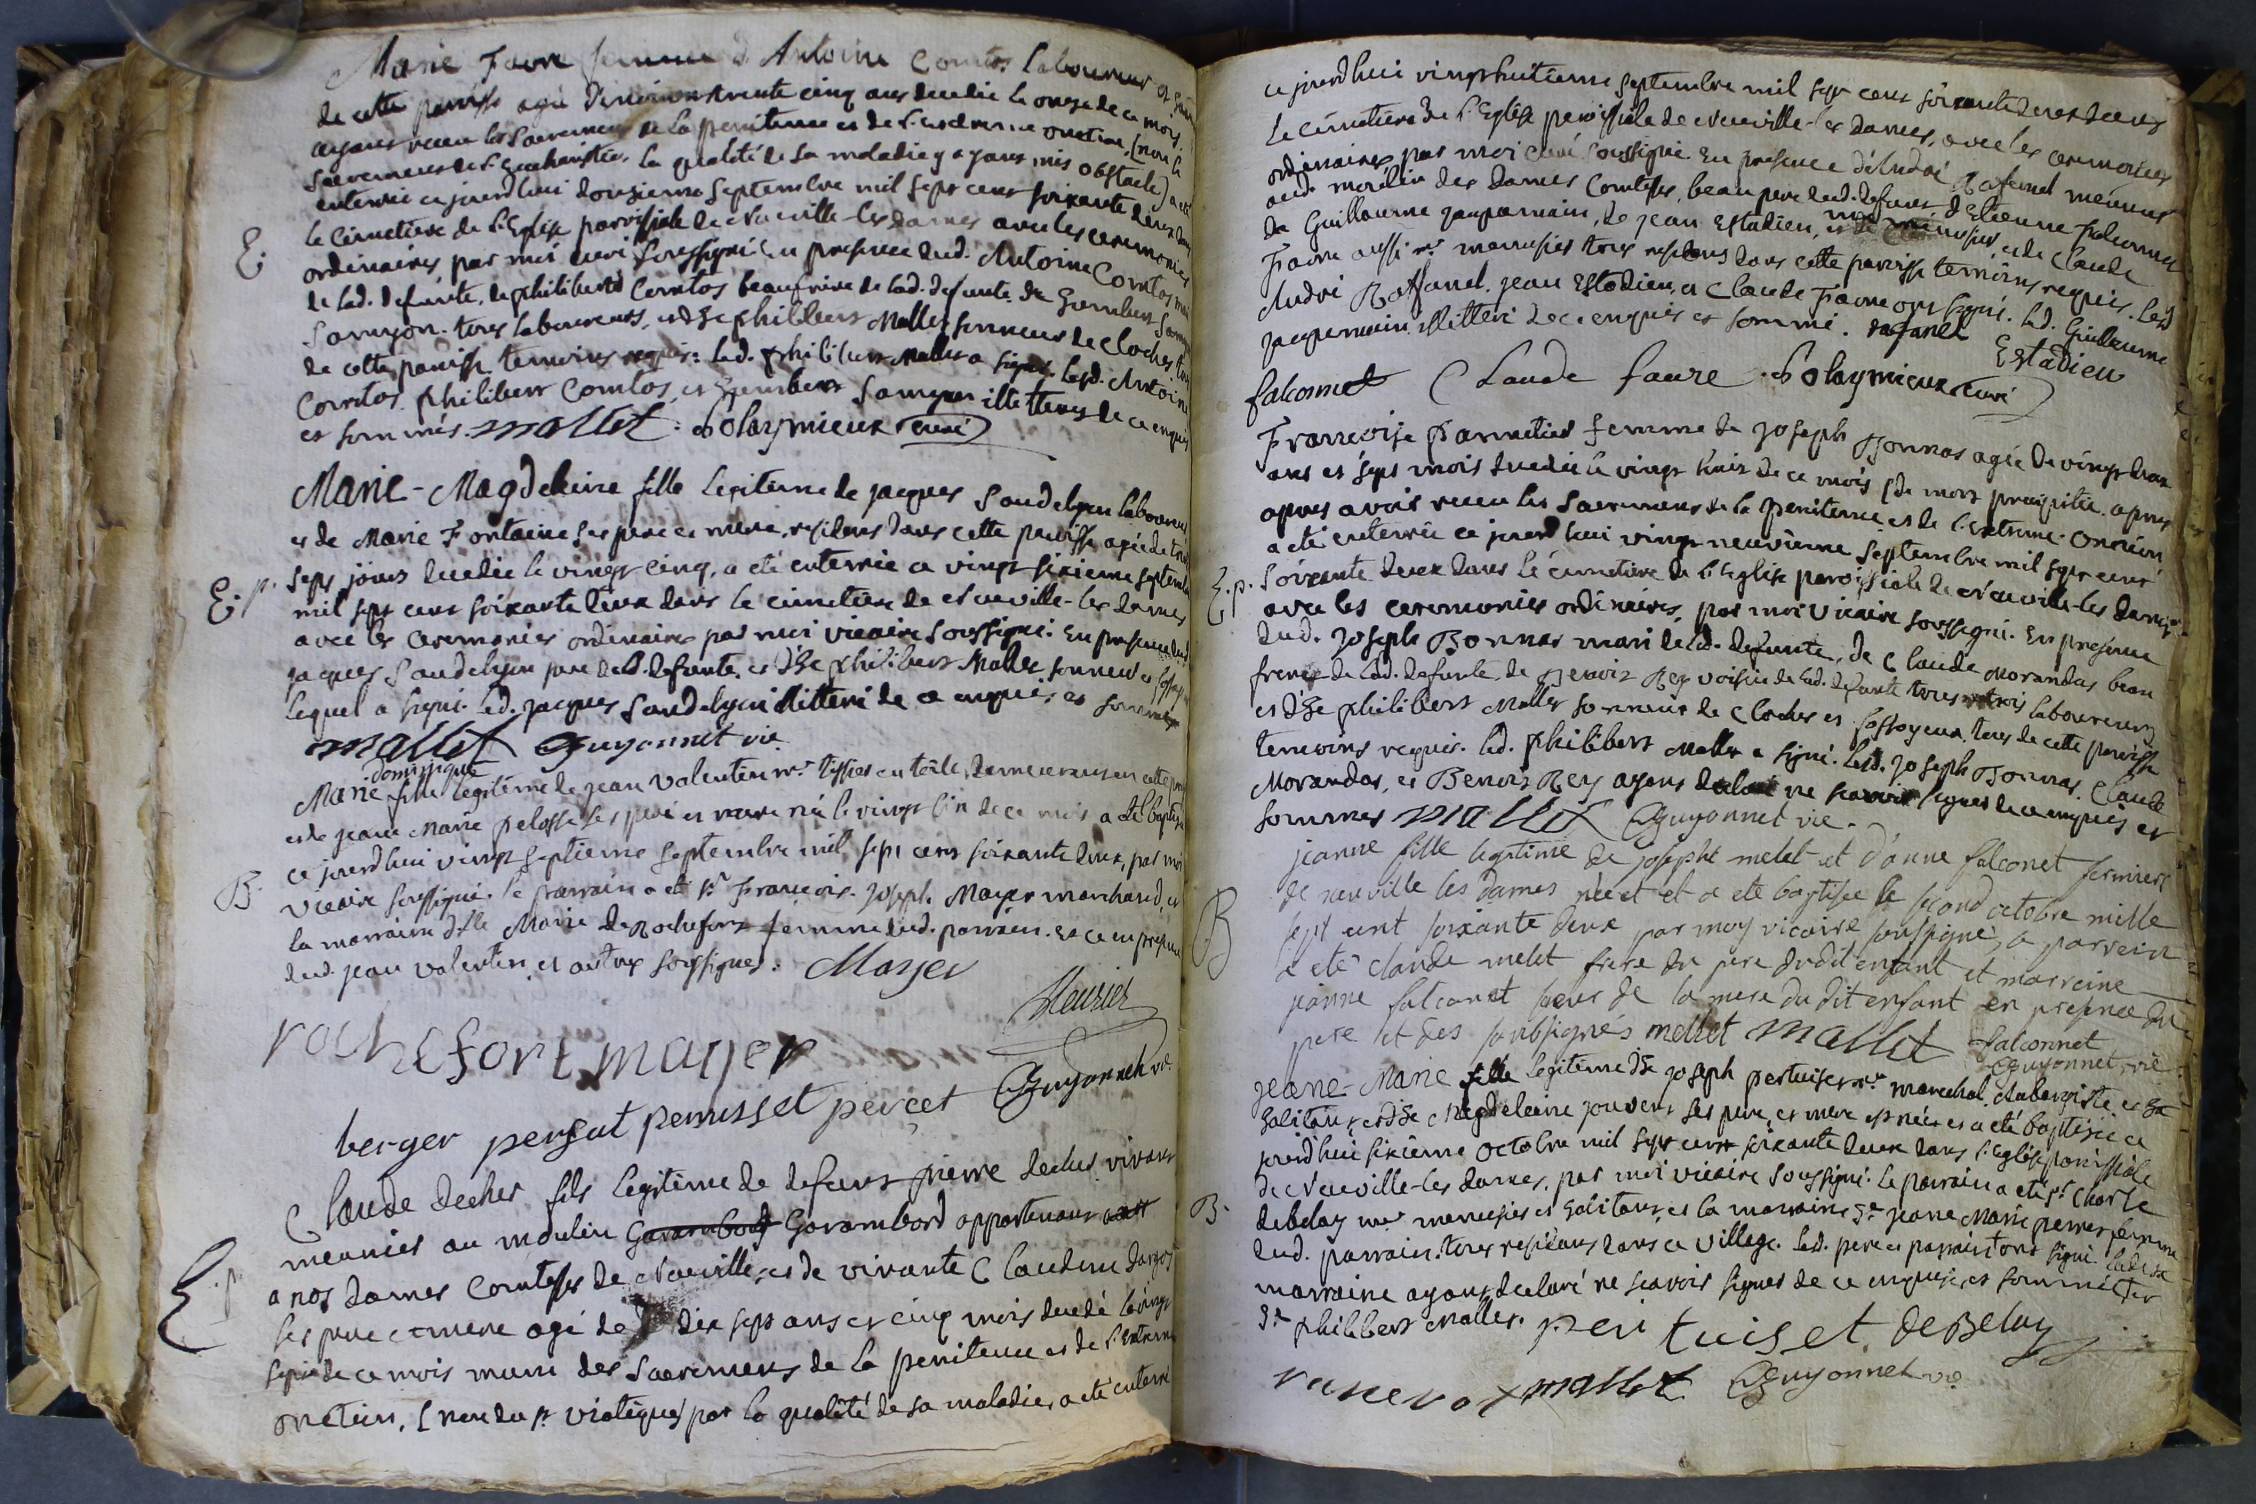 Marie Favre femme d'Antoine Comtos laboureur
de cette paroisse agée d'environ trente cinq ans decedée le onze de ce mois
ayant receu les sacremens de la penitence et de l'extreme onction, (non le
sacrement de l'Eucharistie, la qualité de sa maladie y ayant mis obstacle) a eté
enterrée ce jourd'hui douzieme septembre mil sept cent soixante deux dans
le cimetiere de l'Eglise paroissiale de Neuville-les dames avec les ceremonies
E.
ordinaires, par moi curé soussigné en presence dud. Antoine Comtos mari
de lad. defunte, de philibert Comtos beaufrere de lad. defunte de Humbert
Samyon. tous laboureurs, et de Sr philibert Mallet sonneur de cloches tous
de cette paroisse temoins requis: led. philibert Mallet a signé. lesd. Antoine
Comtos philibert Comtos, et Humbert Samyon illitterés de ce enquis
et sommés. mallet Polaymieux curé
Marie-Magdeleine fille legitime de jacques Sandelyon laboureur
et de Marie Fontaine ses pere et mere, residens dans cette paroisse agée de
E. p.
sept jours decedée le vingt cinq, a eté enterrée ce vingt sixieme septembre
mil sept cent soixante deux dans le cimetiere de Neuville-les dames
avec les ceremonies ordinaires par moi vicaire soussigné. En presence dud.
jacques Sandelyon pere de lad. defunte, et de Sr philibert Mallet sonneur et
lequel a signé. led. jacques Sandelyon illitteré de ce enquis, et sommé
mallet Guyonnet vic.
dominique
Marie fille legitime de jean valentin me. tissier en toile, demeurant en cette
et de jeane Marie pelosse ses pere et mere née le vingt six de ce mois a eté baptisée
B.
ce jourd'hui vingt septieme septembre mil sept cent soixante deux, par moi
vicaire soussigné. le parrain a eté sr. François-joseph Mayer marchand, et
la marraine dlle Marie de Rochefort femme dud. parrain. Et ce en presence
dud. jean valentin et autres soussignés: Mayer
fleurier
rochefort mayer
berger persat perrisset perçet Guyonnet vic.
Claude decher fils legitime de defunt pierre decher vivant
meunier au moulin Garambord Garambord appartenant
E. p.
a nos dames Comtesses de Neuville, et de vivante Claudine
ses pere et mere agé de dix sept ans et cinq mois decedé le vingt
sept de ce mois muni des sacremens de la penitence et de l'extreme
onction, (non du st. viatique) par la qualité de sa maladie, a eté enterré
ce jourd'hui vingt huitieme septembre mil sept cent soixante deux dans
le cimetiere de l'Eglise paroissiale de Neuville-les dames, avec les ceremonies
ordinaires, par moi curé soussigné. En presence d'André Rafanel meunier
aud. moulin des dames Comtesses, beau pere dud. defunt, d'Etienne Falconnet
de Guillaume jacquemain, de jean Estadieu, me menusier, et de Claude
Favre aussi me. menusier tous residens dans cette paroisse temoins requis. lesd.
André Rafanel, jean Estadieu, et Claude Favre ont signé. led. Guillaume
jacquemain illitteré de ce enquis et sommé. rafanel
Estadieu
falconnet Claude faure Polaymieux curé
Françoise parmetier femme de joseph Bonnas agée de vingt deux
ans et sept mois decedée le vingt huit de ce mois de mort precipitée. apres
apres avoir receu les sacremens de la penitence et de l'extreme-onction
a eté enterrée ce jourd'hui vingt neuvieme septembre mil sept cent
E. p.
soixante deux dans le cimetiere de l'Eglise paroissiale de Neuville-les dames
avec les ceremonies ordinaires, par moi vicaire soussigné. En presence
dud. joseph Bonnas mari de lad. defunte, de Claude Morandas beau
frere de lad. defunte, de Benoit Rey voisin de lad. defunte tous trois laboureurs
et de Sr philibert Mallet sonneur de cloches et fossoyeur, tous de cette paroisse
temoins requis. led. philibert Mallet a signé. lesd. joseph Bonnas, Claude
Morandas, et Benoit Rey ayans declaré ne scavoir signer de ce enquis et
sommes mallet Guyonnet vic.
jeanne fille legitime de josephe melet et d'anne falconet fermiers
de neuville les dames née et et a eté baptisée le second octobre mille
B
sept cent soixante deux par moy vicaire soussigné, a parrein
a eté claude melet frere du pere dudit enfant et marreine
jeanne falconet soeur de la mere dudit enfant en presence du
pere et des soubsignés mellet mallet falconnet
Guyonnet, vic
jeane-Marie fille legitime de Sr joseph pertuiset me. marechal, Aubergiste, et
habitant, et de Magdeleine jouvent ses pere, et mere est née et a eté baptisée ce
jourd'hui sixieme octobre mil sept cent soixante deux dans l'Eglise paroissiale
de Neuville-les dames, par moi vicaire soussigné. le parrain a eté sr. Charle
B.
debelay me. menusier et habitant, et la marraine jeane Marie perret femme
dud. parrain. tous residans dans ce village. led. pere et parrain ont signé. lade.
marraine ayant declaré ne scavoir signer de ce enquise, et sommée
philibert Mallet. pertuiset deBelay
mallet Guyonnet vic